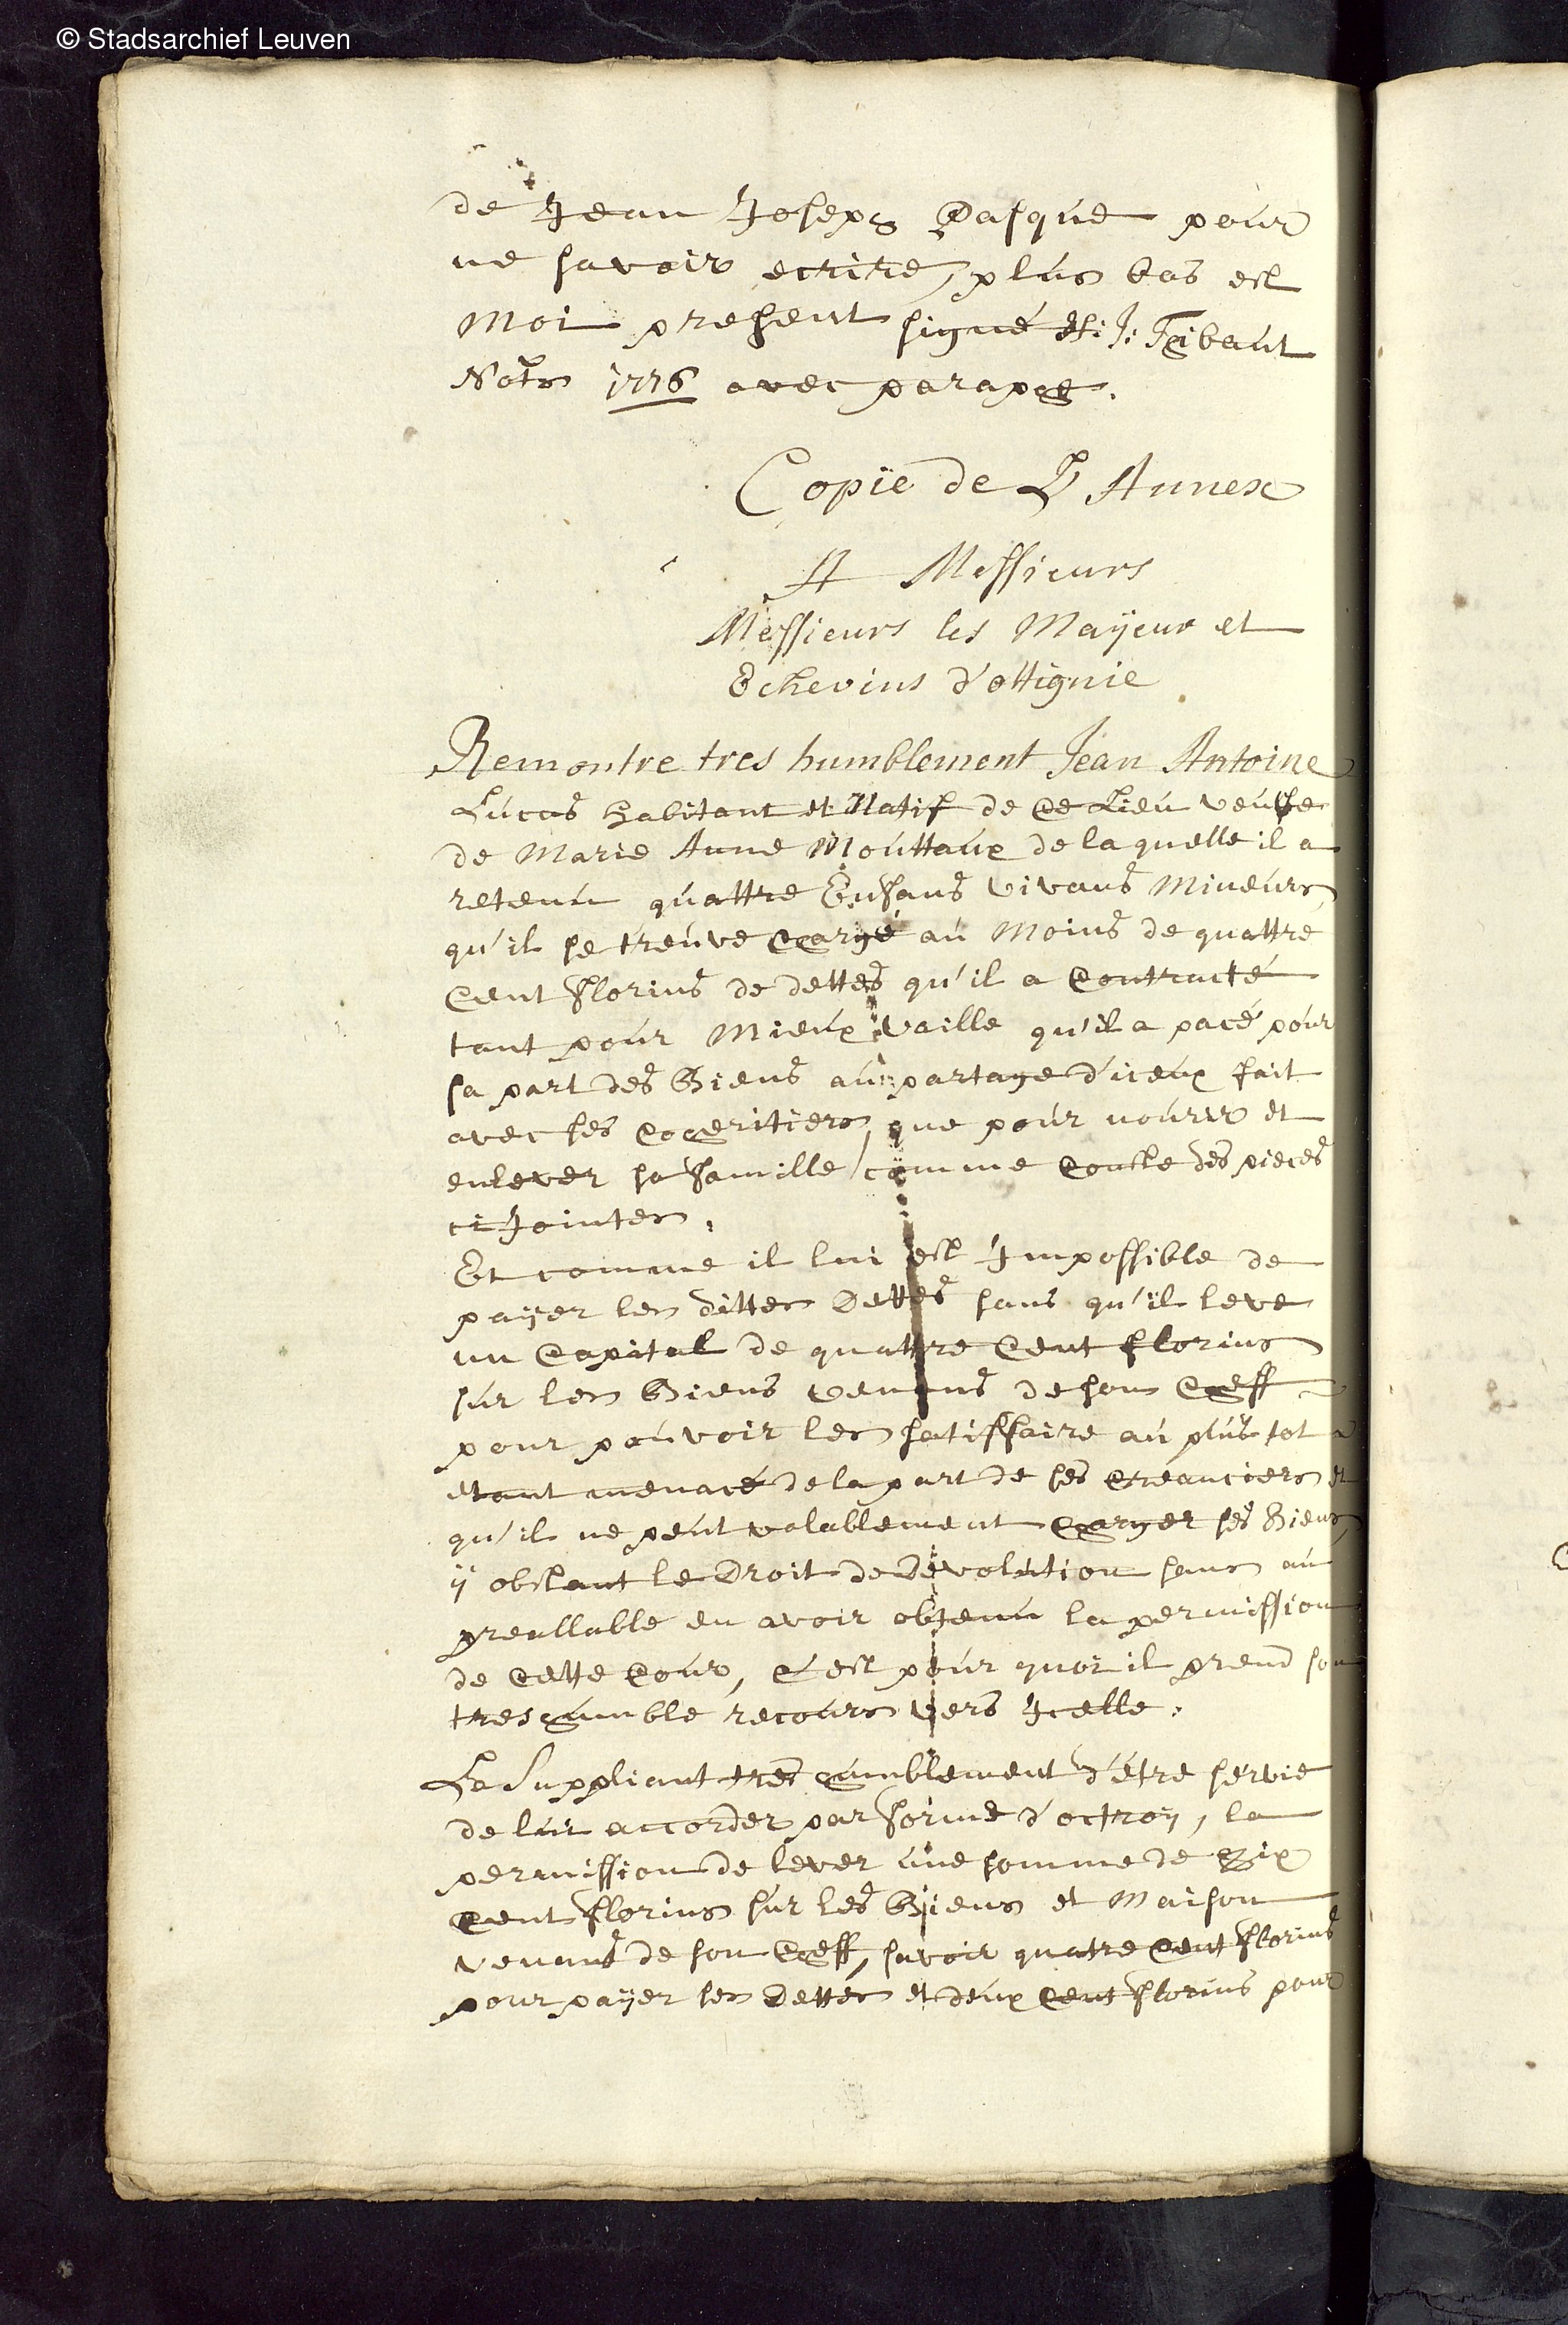 © Stadsarchief Leuven
de Jean Joseph Pasque pour
ne savoir ecrire, plus bas est
Moi present signé J: Thibaut
Notrs 1776 avec paraphe.
Copie de L'Annex
A Messieurs
Messieurs les Maÿeur et
Echevins d'ottignie
Remontre tres humblement Jean Antoine
Lucas habitant et Natif de ce Lieu veuffe
de Marie Anne Mouttaux de laquelle il a
retenu quattre Enfans vivans Mineurs,
qu'il se treuve chargé au Moins de quattre
Cent florins de dettes qu'il a Contracté
tant pour Mieux vaille qu'il a pacé pour
sa part des Biens au partage d'iceux fait
avec ses Coheritiers, que pour nourir et
enlever sa famille comme Conste des pieces
ci Jointes.
Et comme il lui est Impossible de
paÿer les dittes Dettes sans qu'il leve
un Capital de quattre Cent florins
sur les Biens venans de son Cheff
pour pouvoir les satisfaire au plus tot
etant menacé de la part de ses Creanciers et
qu'il ne peut valablement Charger ses Biens,
ÿ obstant le Droit de Devolution sans au
preallable en avoir obtenu la permission
de Cette Cour, C'est pour quoi il prend son
tres humble recours vers Icelle.
Le Suppliant tres humblement d'être servie
de lui accorder par forme d'octroÿ, la
permission de lever une somme de Six
Cent florins sur les Biens et Maison
venans de son Cheff, savoir quatre Cent florins
pour paÿer ses Dettes et deux Cent florins pour